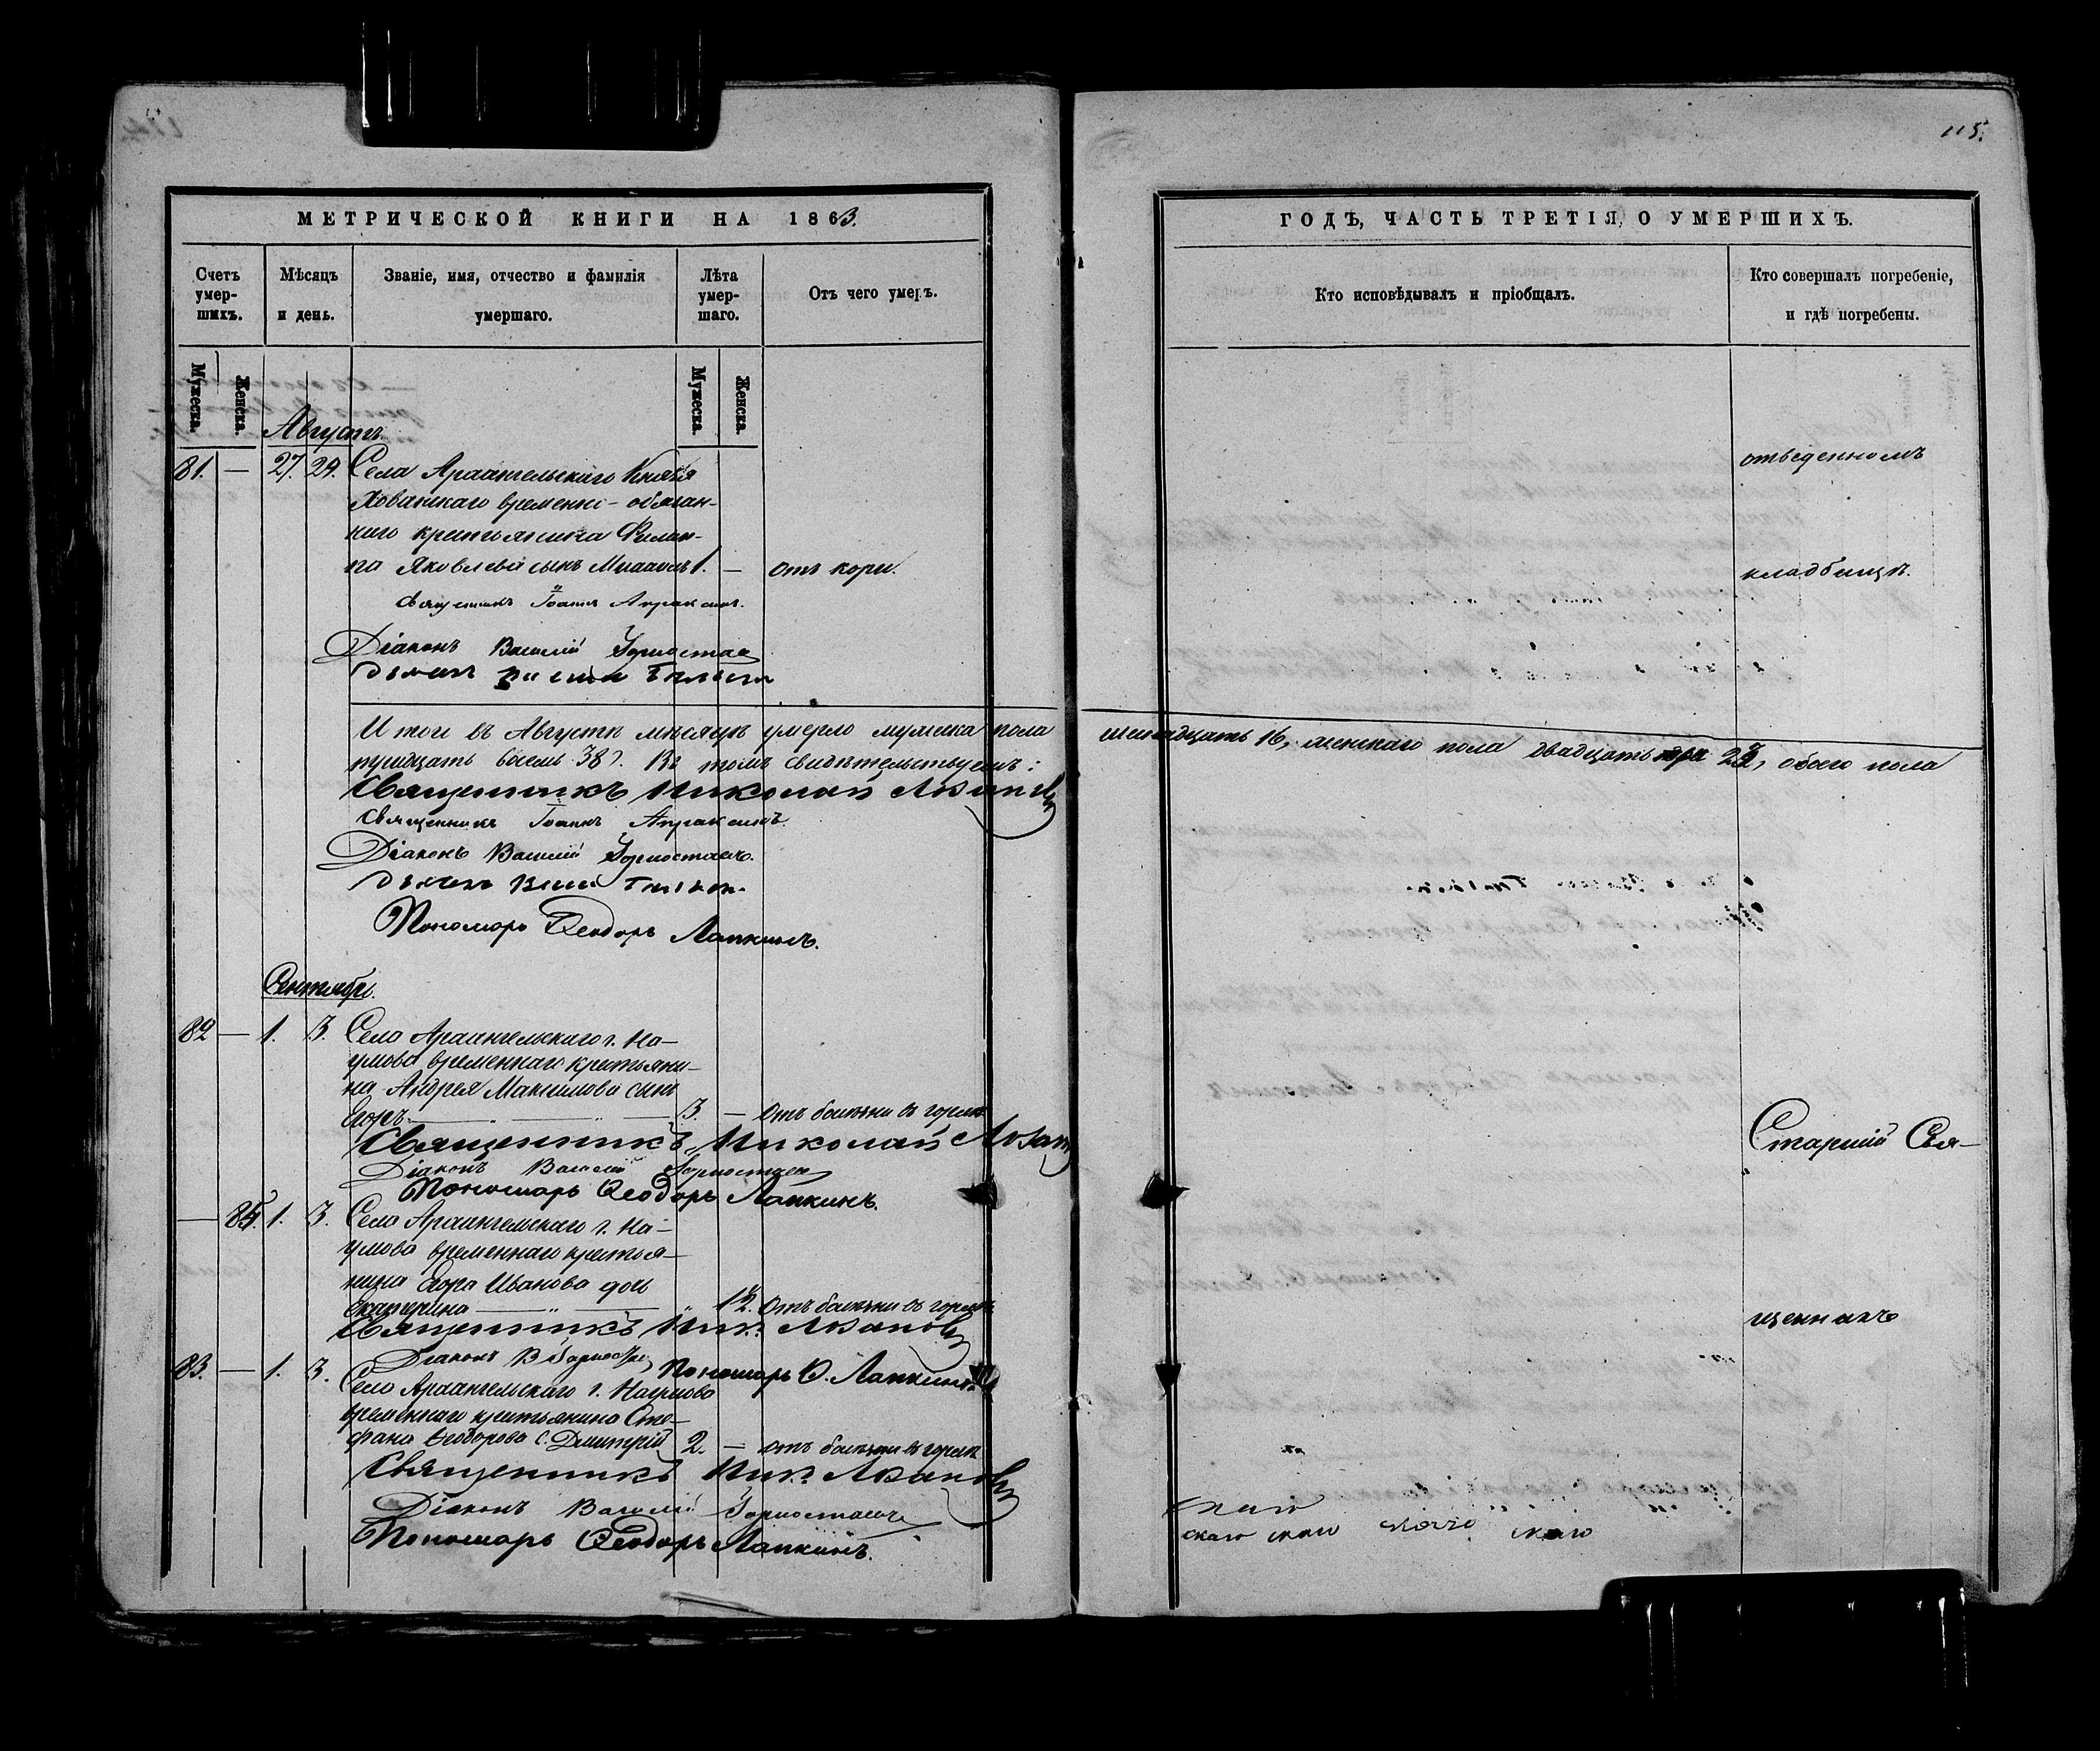 115.
МЕТРИЧЕСКОЙ КНИГИ НА 1863.
Счетъ умер-шихъ.
Мѣсяцъ и день.
Званіе, имя, отчество и фамилія умершаго.
Лѣта умер-шаго.
Отъ чего умеръ.
Мужеска.
Женска.
Мужеска.
Женска.
Августъ
81. — 27. 29. Села Архангельскаго Князя
Хованскаго временно-обязан-
наго крестьянина Филип-
па Яковлева сынъ Михаилъ 1. — отъ кори.
Священникъ Іоаннъ Апраксинъ.
Діаконъ Василій Горностаевъ
Итого въ Августѣ мѣсяцѣ умерло мужеска пола
тридцать восемь 38. Въ томъ свидѣтельствуемъ:
Священникъ Николай Лозановъ
Священникъ Іоаннъ Апраксинъ.
Діаконъ Василій Горностаевъ.
Пономарь Ѳеодоръ Лапкинъ.
Сентябрь.
82 — 1. 3. Села Архангельскаго г. На-
умова временнаго крестьяни-
на Андрея Максимова сынъ
Егоръ 3. — Отъ болѣзни въ горлѣ
Священникъ Николай Лозановъ
Діаконъ Василій Горностаевъ
Пономарь Ѳеодоръ Лапкинъ.
— 1. 3. Села Архангельскаго г. На-
умова временнаго крестья-
нина Егора Иванова дочь
Екатерина Отъ болѣзни въ горлѣ
Священникъ Ник. Лозановъ
Діаконъ В. Горностаевъ Пономарь Ѳ. Лапкинъ
83. — 1. 3. Села Архангельскаго г. Наумова
временнаго крестьянина Сте-
фана Ѳеодорова с. Дмитрій 2. — отъ болѣзни въ горлѣ
Священникъ Ник. Лозановъ
Діаконъ Василій Горностаевъ
Пономарь Ѳеодоръ Лапкинъ.
ГОДЪ, ЧАСТЬ ТРЕТІЯ, О УМЕРШИХЪ.
Кто исповѣдывалъ и пріобщалъ.
Кто совершалъ погребеніе, и гдѣ погребены.
отведенномъ
кладбищѣ.
шестнадцать 16, женскаго пола двадцать 22, обоего пола
Старшій Свя-
щенникъ
скаго скаго скаго скаго